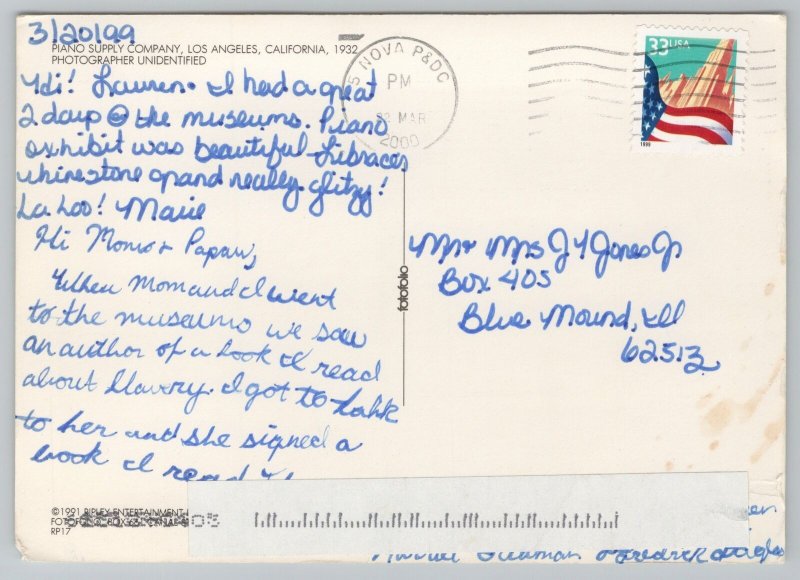 3/20/99
PIANO SUPPLY COMPANY, LOS ANGELES, CALIFORNIA, 1932
PHOTOGRAPHER UNIDENTIFIED
Hi! Lauren & I had a great
2 days @ the museums. Piano
exhibit was beautiful – Libraces
rhinestone grand really glitzy!
Marie
Hi Moms & Papaw,
When Mom and I went
to the museums we saw
an author of a book I read
about slavery. I got to talk
to her and she signed a
book I read
©1991 RIPLEY ENTERTAINMENT
FOTOFOLIO, BOX 661 CANAL
RP17
fotofolio
NOVA P&DC
PM
22 MAR
2000
33 USA
1999
Mr & Mrs J Y Jones Jr
Box 405
Blue Mound, Ill
62513